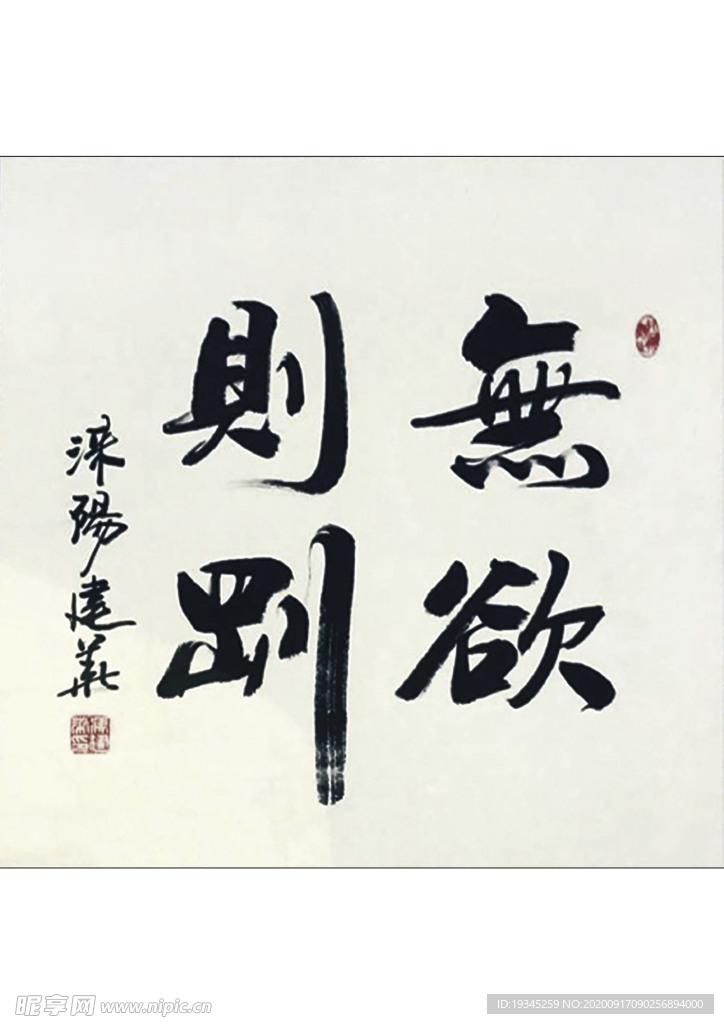 無欲
則剛
陽建華
昵享网 www.nipic.cn
ID:19345259 NO:20200917090256894000